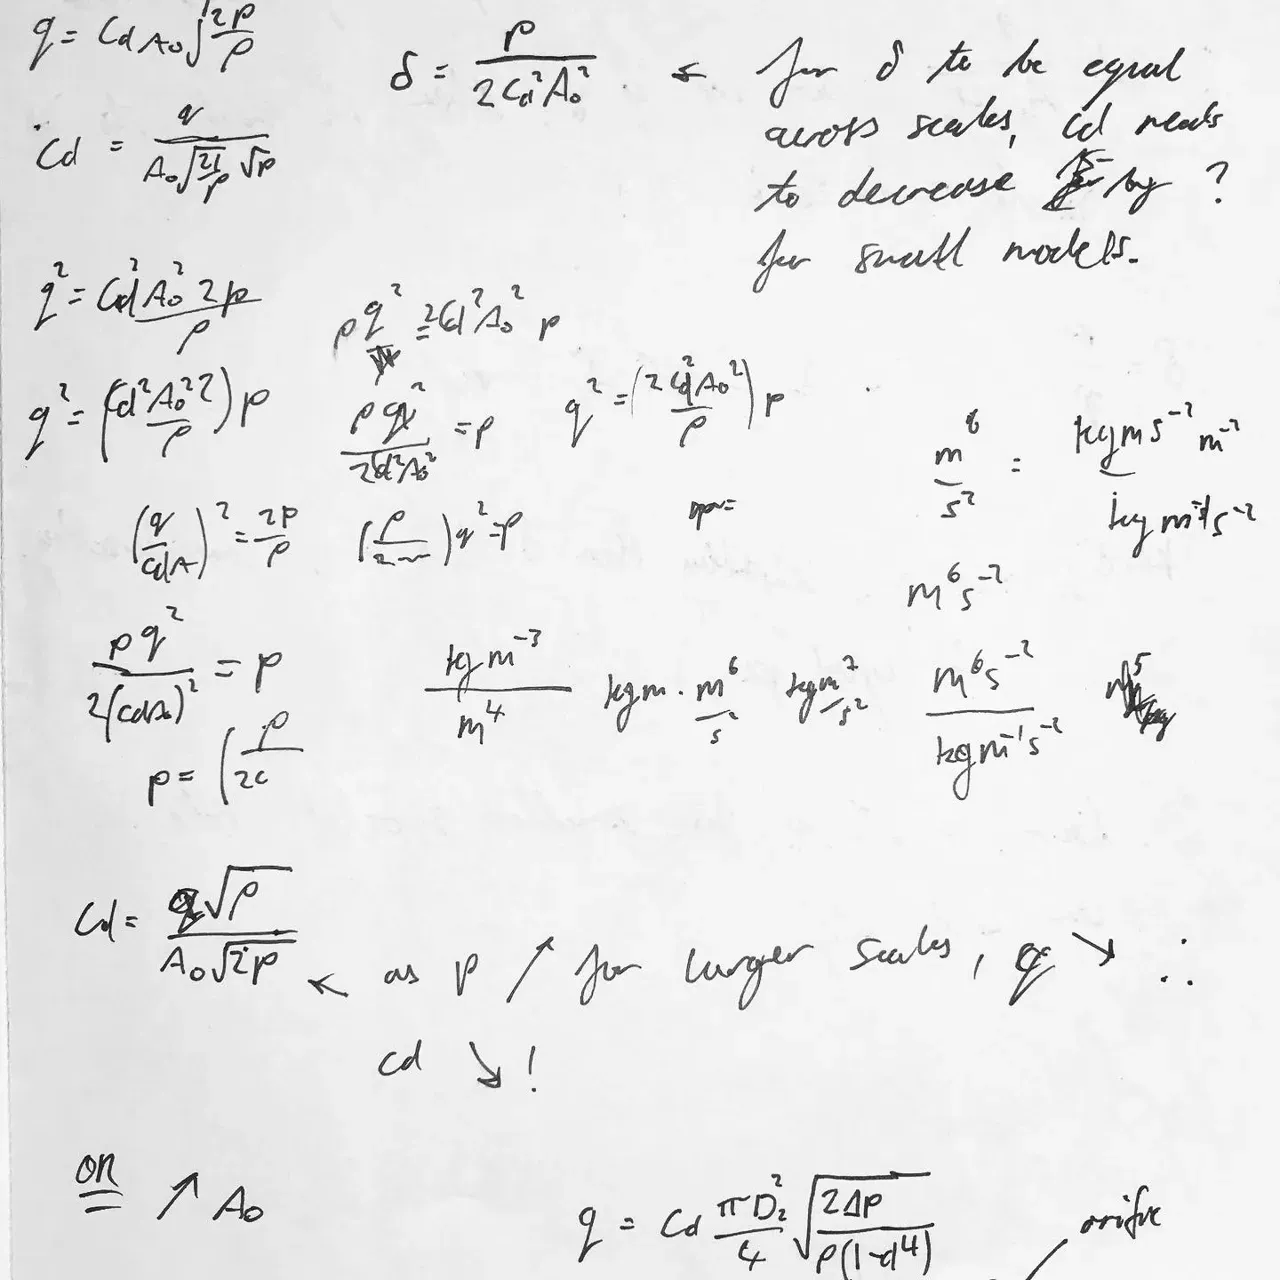 q = Cd A₀ √(2p/ρ)
δ = ρ / 2Cd²A₀² ← for δ to be equal
across scales, Cd needs
to decrease by ?
for small models.
Cd = q / (A₀ √(21/ρ) √p)
q² = Cd² A₀² 2p / ρ
ρq² = 2Cd²A₀² p
q² = (Cd²A₀²2 / ρ) p
ρq² / 2Cd²A₀² = p
q² = (2Cd²A₀² / ρ) p
m⁶/s² = kgms⁻² m⁻² / kgm⁻¹s⁻²
(q / CdA)² = 2p/ρ
(ρ / 2~) q² = p
m⁶s⁻²
ρq² / 2(CdA₀)² = p
kgm⁻³ / m⁴
kgm · m⁶/s²
kgm⁷/s²
m⁶s⁻² / kgm⁻¹s⁻²
p = (ρ / 2C
Cd = q√ρ / A₀√2p ← as p ↗ for larger scales, q ↘ ∴
Cd ↘ !
OR ↗ A₀
q = Cd πD₂²/4 √(2Δp / ρ(1-d⁴))